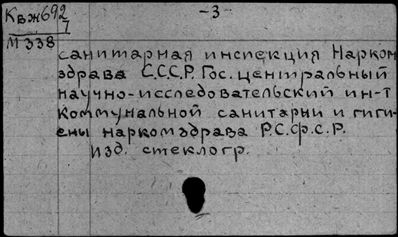 Квж692 -3-
7
М338
санитарная инспекция Нарком
здрава С.С.С.Р. Гос. центральный
научно-исследовательский ин-т
коммунальной санитарии и гиги-
ены наркомздрава Р.С.Ф.С.Р.
изд. стеклогр.